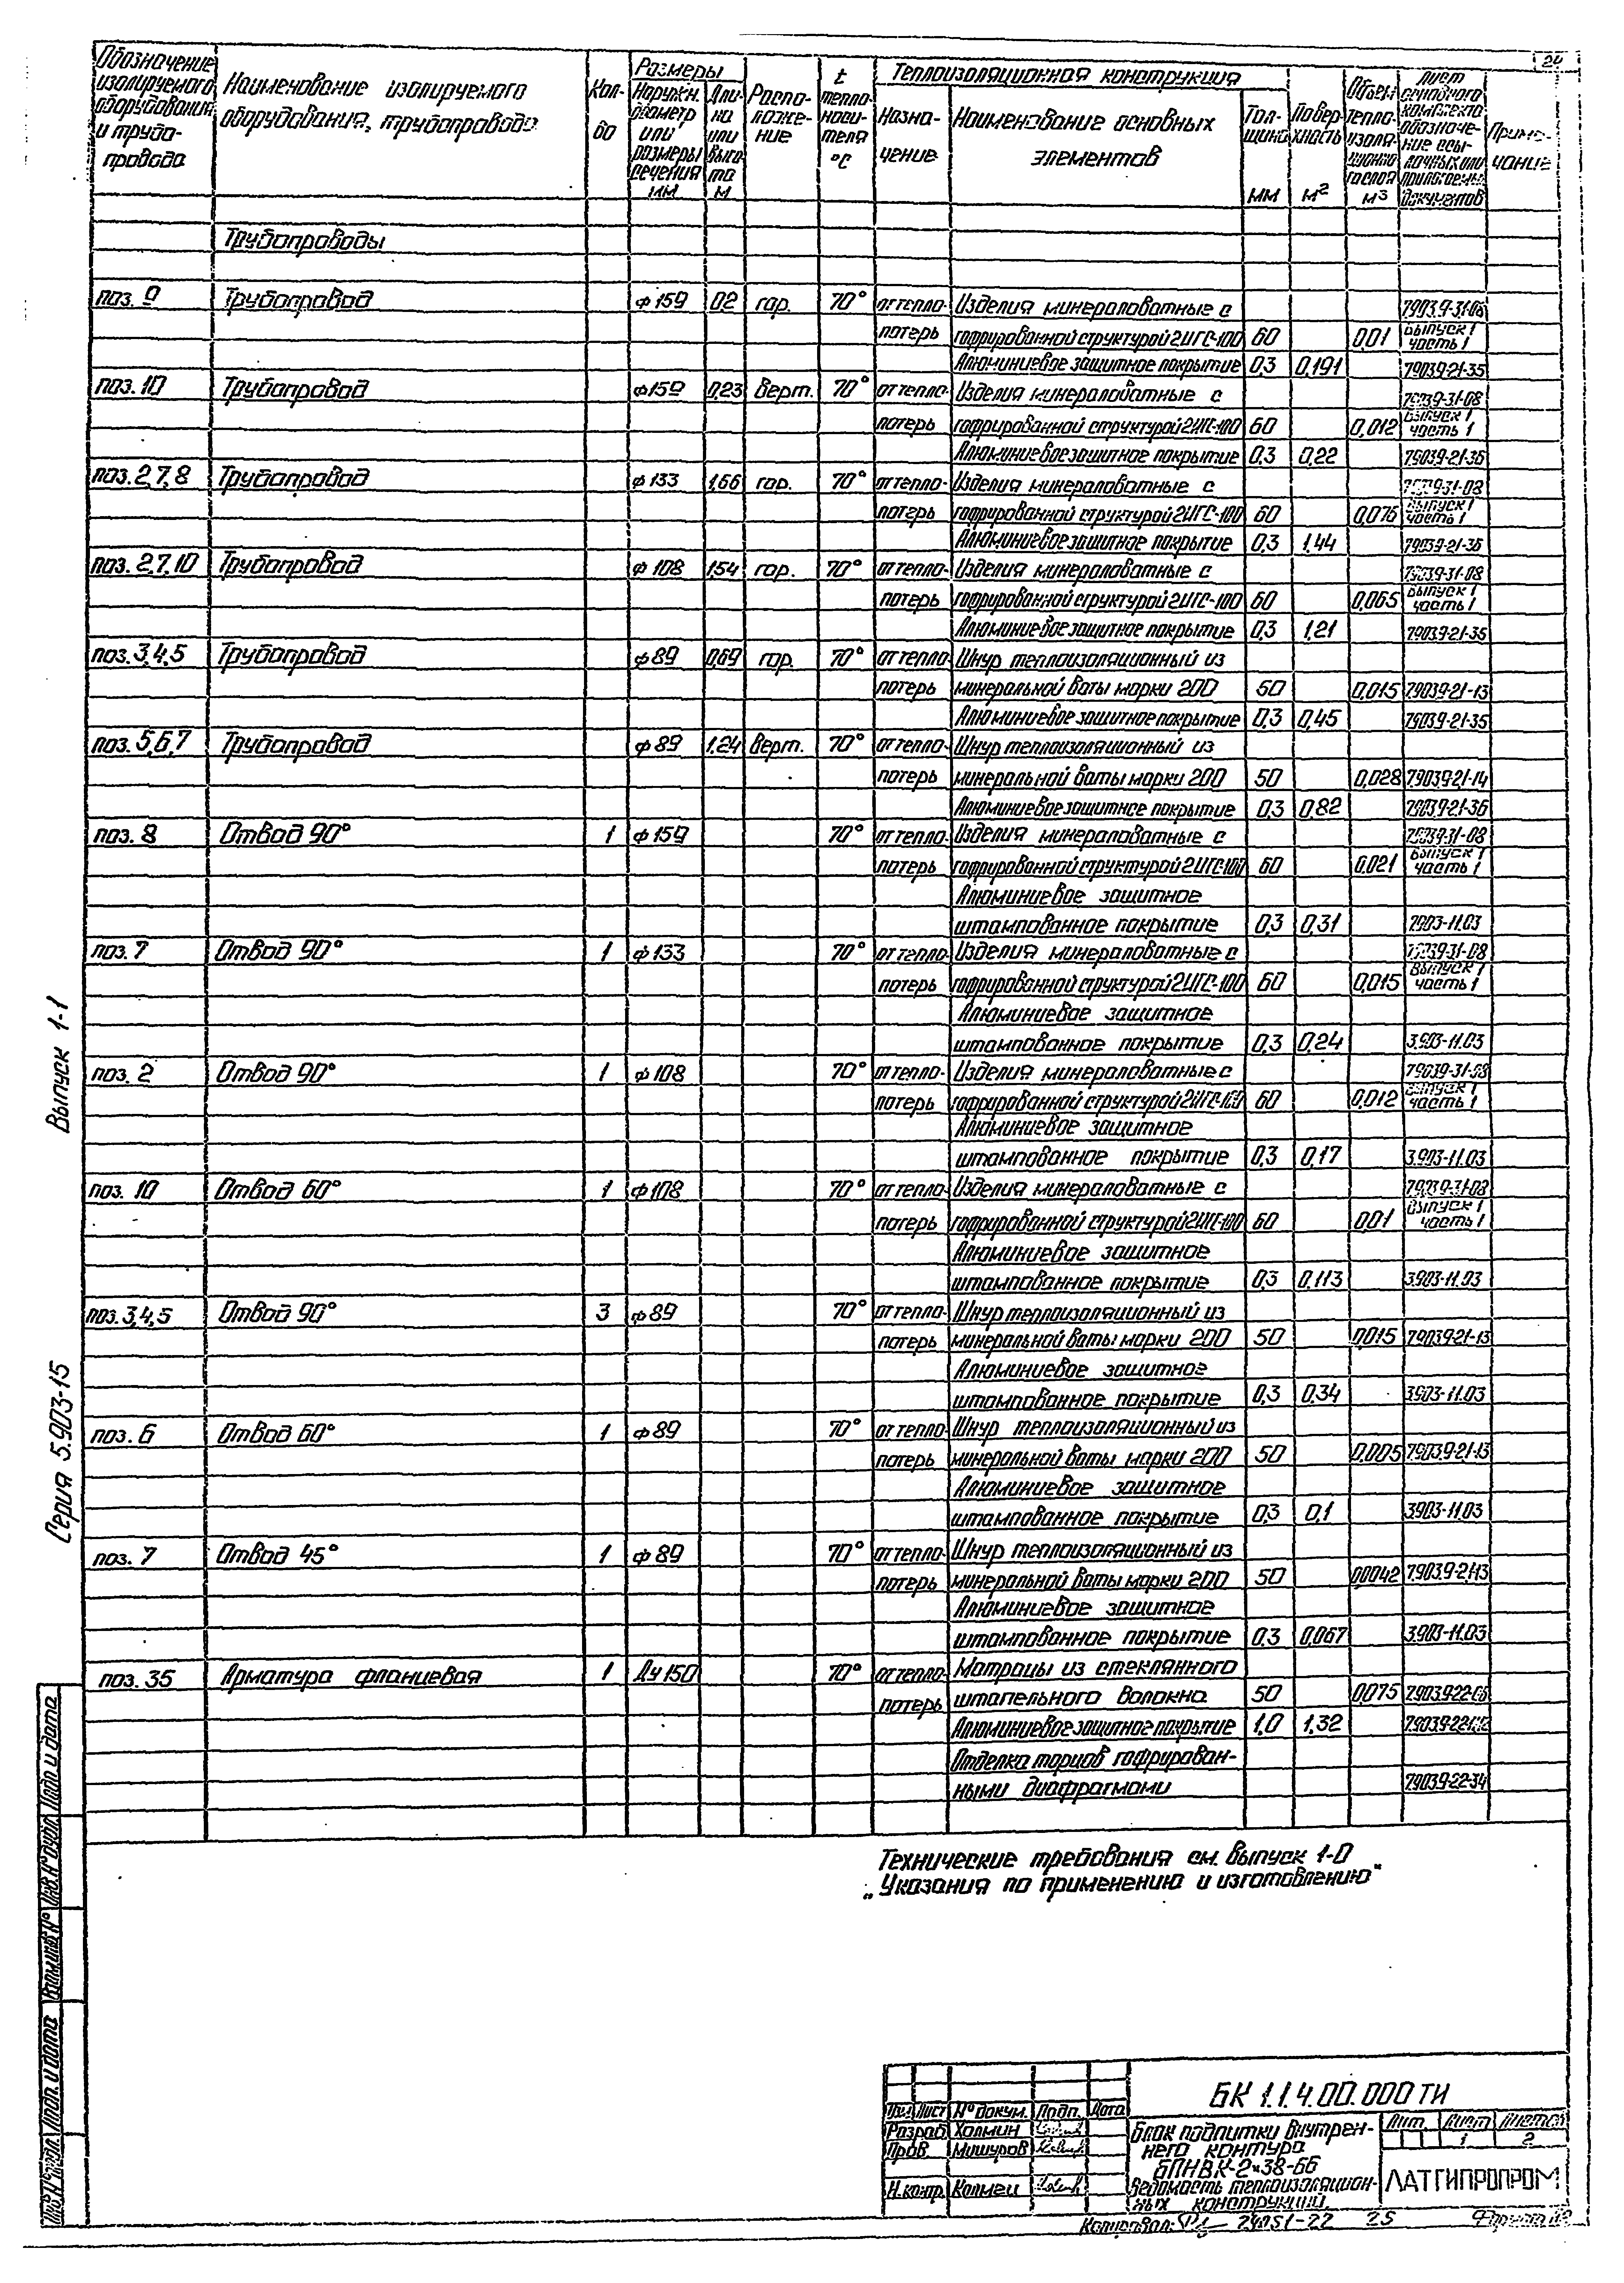 24
Обозначение изолируемого оборудования и трубопровода
Наименование изолируемого оборудования, трубопровода
Кол-во
Размеры
Наружн. диаметр или размеры сечения мм
Длина или высота м
Расположение
t теплоносителя °С
Теплоизоляционная конструкция
Назначение
Наименование основных элементов
Толщина мм
Поверхность м²
Объем теплоизоляционного слоя м³
Лист основного комплекта обозначение ссылочных или прилагаемых документов
Примечание
Трубопроводы
поз. 9 Трубопровод ф159 0,2 гор. 70° от тепло- Изделия минераловатные с 7.903.9-3.1-08
потерь гофрированной структурой 2ИГС-100 60 0,01 выпуск 1 часть 1
Алюминиевое защитное покрытие 0,3 0,191 7.903.9-2.1-35
поз. 10 Трубопровод ф159 0,23 Верт. 70° от тепло- Изделия минераловатные с 7.903.9-3.1-08
потерь гофрированной структурой 2ИГС-100 60 0,012 выпуск 1 часть 1
Алюминиевое защитное покрытие 0,3 0,22 7.903.9-2.1-36
поз. 2,7,8 Трубопровод ф133 1,66 гор. 70° от тепло- Изделия минераловатные с 7.903.9-3.1-08
потерь гофрированной структурой 2ИГС-100 60 0,076 выпуск 1 часть 1
Алюминиевое защитное покрытие 0,3 1,44 7.903.9-2.1-36
поз. 2,7,10 Трубопровод ф108 1,54 гор. 70° от тепло- Изделия минераловатные с 7.903.9-3.1-08
потерь гофрированной структурой 2ИГС-100 60 0,065 выпуск 1 часть 1
Алюминиевое защитное покрытие 0,3 1,21 7.903.9-2.1-35
поз. 3,4,5 Трубопровод ф89 0,69 гор. 70° от тепло- Шнур теплоизоляционный из
потерь минеральной ваты марки 200 50 0,015 7.903.9-2.1-13
Алюминиевое защитное покрытие 0,3 0,45 7.903.9-2.1-35
поз. 5,6,7 Трубопровод ф89 1,24 Верт. 70° от тепло- Шнур теплоизоляционный из
потерь минеральной ваты марки 200 50 0,028 7.903.9-2.1-14
Алюминиевое защитное покрытие 0,3 0,82 7.903.9-2.1-36
поз. 8 Отвод 90° 1 ф159 70° от тепло- Изделия минераловатные с 7.903.9-3.1-08
потерь гофрированной структурой 2ИГС-100 60 0,021 выпуск 1 часть 1
Алюминиевое защитное
штампованное покрытие 0,3 0,31 7.903-11.03
поз. 7 Отвод 90° 1 ф133 70° от тепло- Изделия минераловатные с 7.903.9-3.1-08
потерь гофрированной структурой 2ИГС-100 60 0,015 выпуск 1 часть 1
Алюминиевое защитное
штампованное покрытие 0,3 0,24 3.903-11.03
поз. 2 Отвод 90° 1 ф108 70° от тепло- Изделия минераловатные с 7.903.9-3.1-08
потерь гофрированной структурой 2ИГС-100 60 0,012 выпуск 1 часть 1
Алюминиевое защитное
штампованное покрытие 0,3 0,17 3.903-11.03
поз. 10 Отвод 60° 1 ф108 70° от тепло- Изделия минераловатные с 7.903.9-3.1-08
потерь гофрированной структурой 2ИГС-100 60 0,01 выпуск 1 часть 1
Алюминиевое защитное
штампованное покрытие 0,3 0,113 3.903-11.03
поз. 3,4,5 Отвод 90° 3 ф89 70° от тепло- Шнур теплоизоляционный из
потерь минеральной ваты марки 200 50 0,015 7.903.9-2.1-13
Алюминиевое защитное
штампованное покрытие 0,3 0,34 3.903-11.03
поз. 6 Отвод 60° 1 ф89 70° от тепло- Шнур теплоизоляционный из
потерь минеральной ваты марки 200 50 0,005 7.903.9-2.1-13
Алюминиевое защитное
штампованное покрытие 0,3 0,1 3.903-11.03
поз. 7 Отвод 45° 1 ф89 70° от тепло- Шнур теплоизоляционный из
потерь минеральной ваты марки 200 50 0,0042 7.903.9-2.1-13
Алюминиевое защитное
штампованное покрытие 0,3 0,067 3.903-11.03
поз. 35 Арматура фланцевая 1 Ду 150 70° от тепло- Матрацы из стеклянного
потерь штапельного волокна 50 0,075
Алюминиевое защитное покрытие 1,0 1,32
Отделка торцов гофрирован-
ными диафрагмами 7.903.9-2.2-34
Технические требования см. выпуск 1-0
„Указания по применению и изготовлению“
Выпуск 1-1
Серия 5.903-15
Подп. и дата
Инв. № дубл.
Взам. инв. №
Подп. и дата
Инв. № подл.
БК 1.1.4.00.000 ТИ
Изм. Лист № докум. Подп. Дата
Разраб. Холмин
Пров. Мишуров
Н. контр.
Блок подпитки внутрен-
него контура
БПНВК-2×38-66
Ведомость теплоизоляцион-
ных конструкций
Лит. Лист Листов
1 2
ЛАТГИПРОПРОМ
Копировал: 24151-22 25 Формат А3